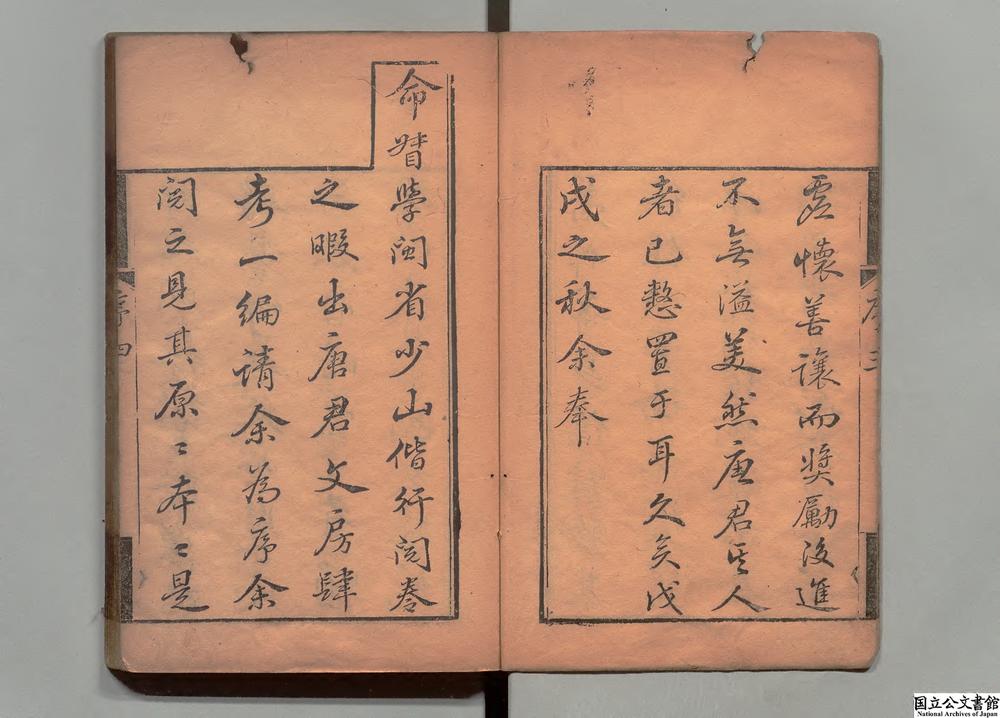 虚懷善讓而奬勵後進
不無溢美然唐君其人
者已憖置于耳久矣戊
戌之秋余奉
序三
命督學閩省少山偕行閱卷
之暇出唐君文房肆
考一編請余為序余
閱之見其原〻本〻是
序四
国立公文書館
National Archives of Japan